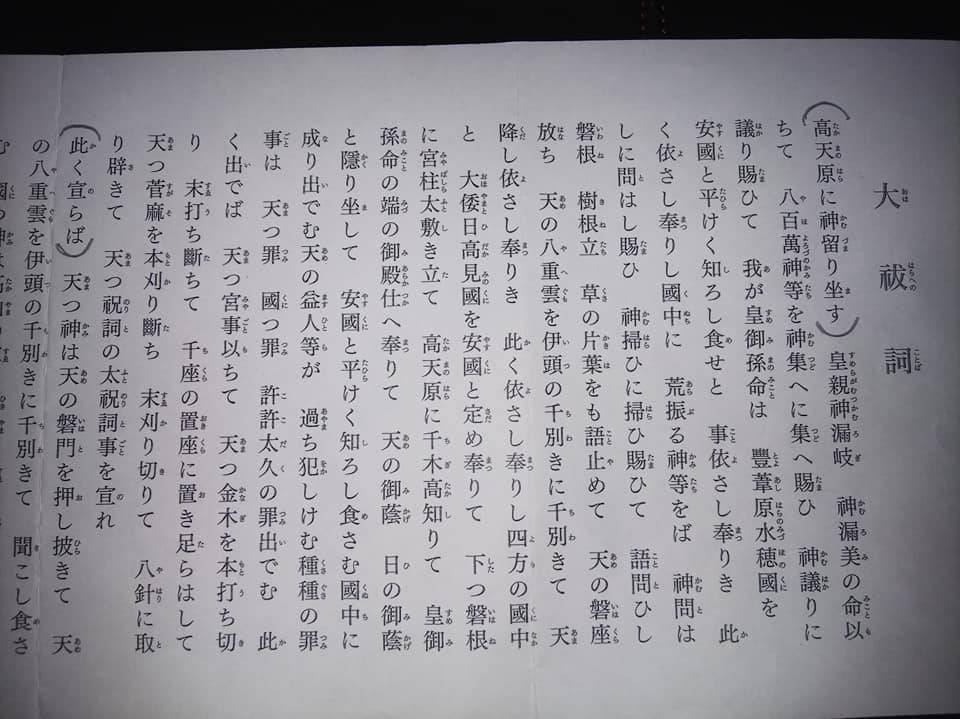 大祓詞
（高天原に神留り坐す）　皇親神漏岐　神漏美の命以
ちて　八百萬神等を神集へに集へ賜ひ　神議りに
議り賜ひて　我が皇御孫命は　豐葦原水穗國を
安國と平けく知ろし食せと　事依さし奉りき　此
く依さし奉りし國中に　荒振る神等をば　神問は
しに問はし賜ひ　神掃ひに掃ひ賜ひて　語問ひし
磐根　樹根立　草の片葉をも語止めて　天の磐座
放ち　天の八重雲を伊頭の千別きに千別きて　天
降し依さし奉りき　此く依さし奉りし四方の國中
と　大倭日高見國を安國と定め奉りて　下つ磐根
に宮柱太敷き立て　高天原に千木高知りて　皇御
孫命の瑞の御殿仕へ奉りて　天の御蔭　日の御蔭
と隱り坐して　安國と平けく知ろし食さむ國中に
成り出でむ天の益人等が　過ち犯しけむ種種の罪
事は　天つ罪　國つ罪　許許太久の罪出でむ　此
く出でば　天つ宮事以ちて　天つ金木を本打ち切
り　末打ち斷ちて　千座の置座に置き足らはして
天つ菅麻を本刈り斷ち　末刈り切りて　八針に取
り辟きて　天つ祝詞の太祝詞事を宣れ
（此く宣らば）　天つ神は天の磐門を押し披きて　天
の八重雲を伊頭の千別きに千別きて　聞こし食さ